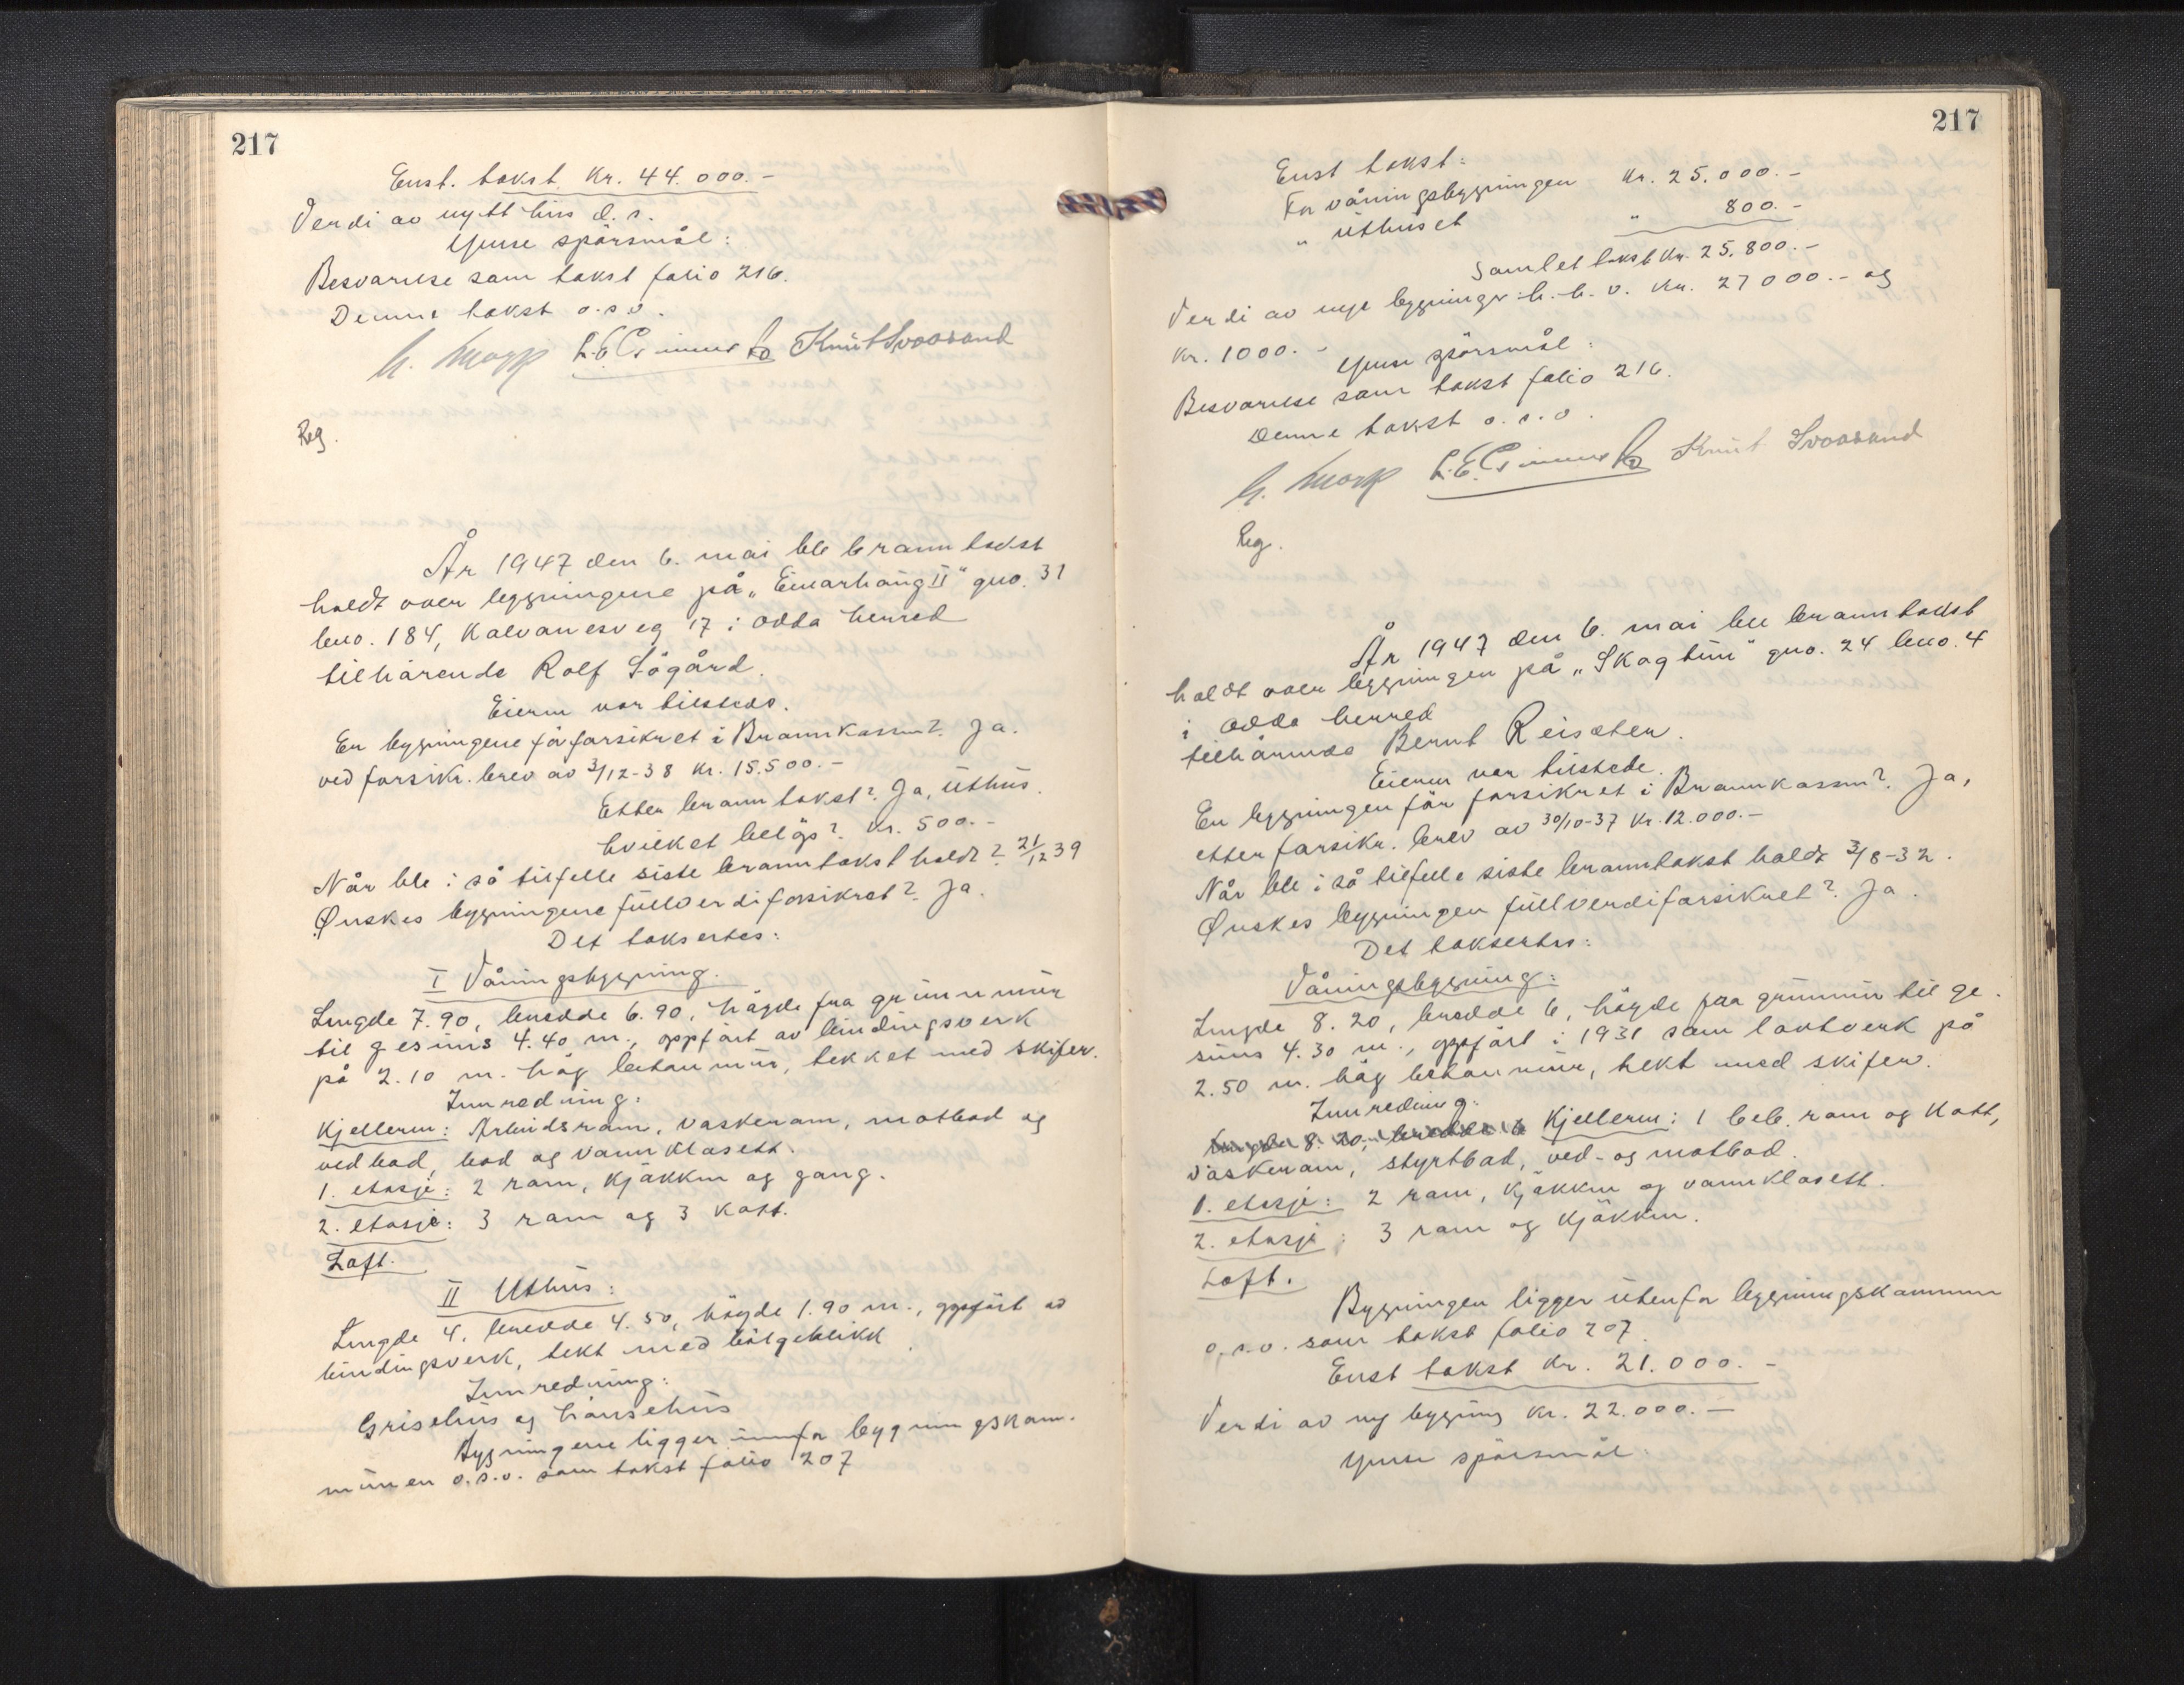 217
Enst. takst Kr. 44.000.-
Verdi av nytt hus d. s.
Ymse spörsmål:
Besvarelse som takst folio 216.
Denne takst o.s.v.
Knut Svoosand
Reg.
År 1947 den 6. mai ble branntakst
holdt over bygningene på „Einarhaug II" gno. 31
bno. 184, Kalvanesveg 17 i Odda herred
tilhörende Rolf Sögård.
Eieren var tilstede.
Er bygningene för forsikret i Brannkassen? Ja.
ved forsikr. brev av 3/12-38 Kr. 15.500.-
Etter branntakst? Ja, Uthus.
hvilket belöp? Kr. 500.-
Når ble i så tilfelle siste branntakst holdt? 21/12 39
Ønskes bygningene fullverdiforsikret? Ja.
Det taksertes:
I Våningsbygning.
Lengde 7.90, bredde 6.90, högde fra grunnmur
til gesims 4.40 m., oppfört av bindingsverk
på 2.10 m. hög betonmur, tekket med skifer.
Innredning:
Kjelleren: Arbeidsrom, vaskerom, matbod og
vedbod, bod og vannklosett.
1. etasje: 2 rom, kjökken og gang.
2. etasje: 3 rom og 3 kott.
Loft.
II Uthus:
Lengde 4, bredde 4.50, högde 1.90 m., oppfört av
bindingsverk, tekt med bölgeblikk.
Innredning:
Grisehus og hönsehus
Bygningene ligger innfor bygningskom-
munen o.s.v. som takst folio 207
217
Enst takst:
For våningsbygningen Kr. 25.000.-
„ uthuset „ 800.-
Samlet takst Kr. 25.800.-
Verdi av nye bygninger: h.h.v. Kr. 27000.- og
Kr. 1000.-
Ymse spörsmål:
Besvarelse som takst folio 216.
Denne takst o.s.v.
Knut Svoosand
Reg.
År 1947 den 6. mai ble branntakst
holdt over bygningen på „Skogtun" gno. 24 bno. 4
i Odda herred
tilhörende Bernt Reisæter.
Eieren var tilstede.
Er bygningen för forsikret i Brannkassen? Ja,
etter forsikr. brev av 30/10-37 Kr. 12.000.-
Når ble i så tilfelle siste branntakst holdt 3/8-32.
Ønskes bygningen fullverdiforsikret? Ja.
Det taksertes:
Våningsbygning:
Lengde 8.20, bredde 6, högde fra grunnmur til ge-
sims 4.30 m., oppfört i 1931 som laftverk på
2.50 m. hög betonmur, tekt med skifer.
Innredning:
Lengde 8.20, bredde 6 Kjelleren: 1 beb. rom og kott,
vaskerom, styrtbad, ved- og matbod.
1. etasje: 2 rom, kjökken og vannklosett.
2. etasje: 3 rom og kjökken.
Loft.
Bygningen ligger utenfor bygningskommunen
o.s.v. som takst folio 207
Enst takst Kr. 21.000.-
Verdi av ny bygning Kr. 22.000.-
Ymse spörsmål: